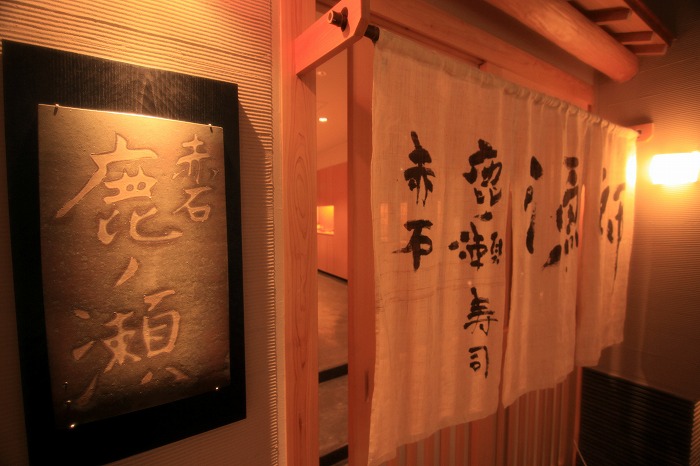 赤石
鹿ノ瀬
鹿ノ瀬寿司
赤石